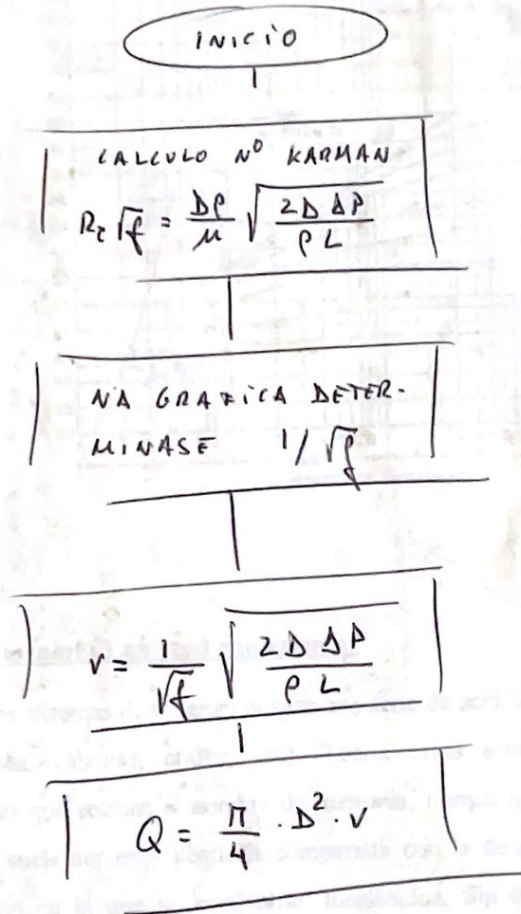 INICIO
CALCULO Nº KARMAN
Re √f = Dρ/μ √(2D ΔP / ρL)
NA GRAFICA DETER-
MINASE 1/√f
v = 1/√f √(2D ΔP / ρL)
Q = π/4 · D² · v